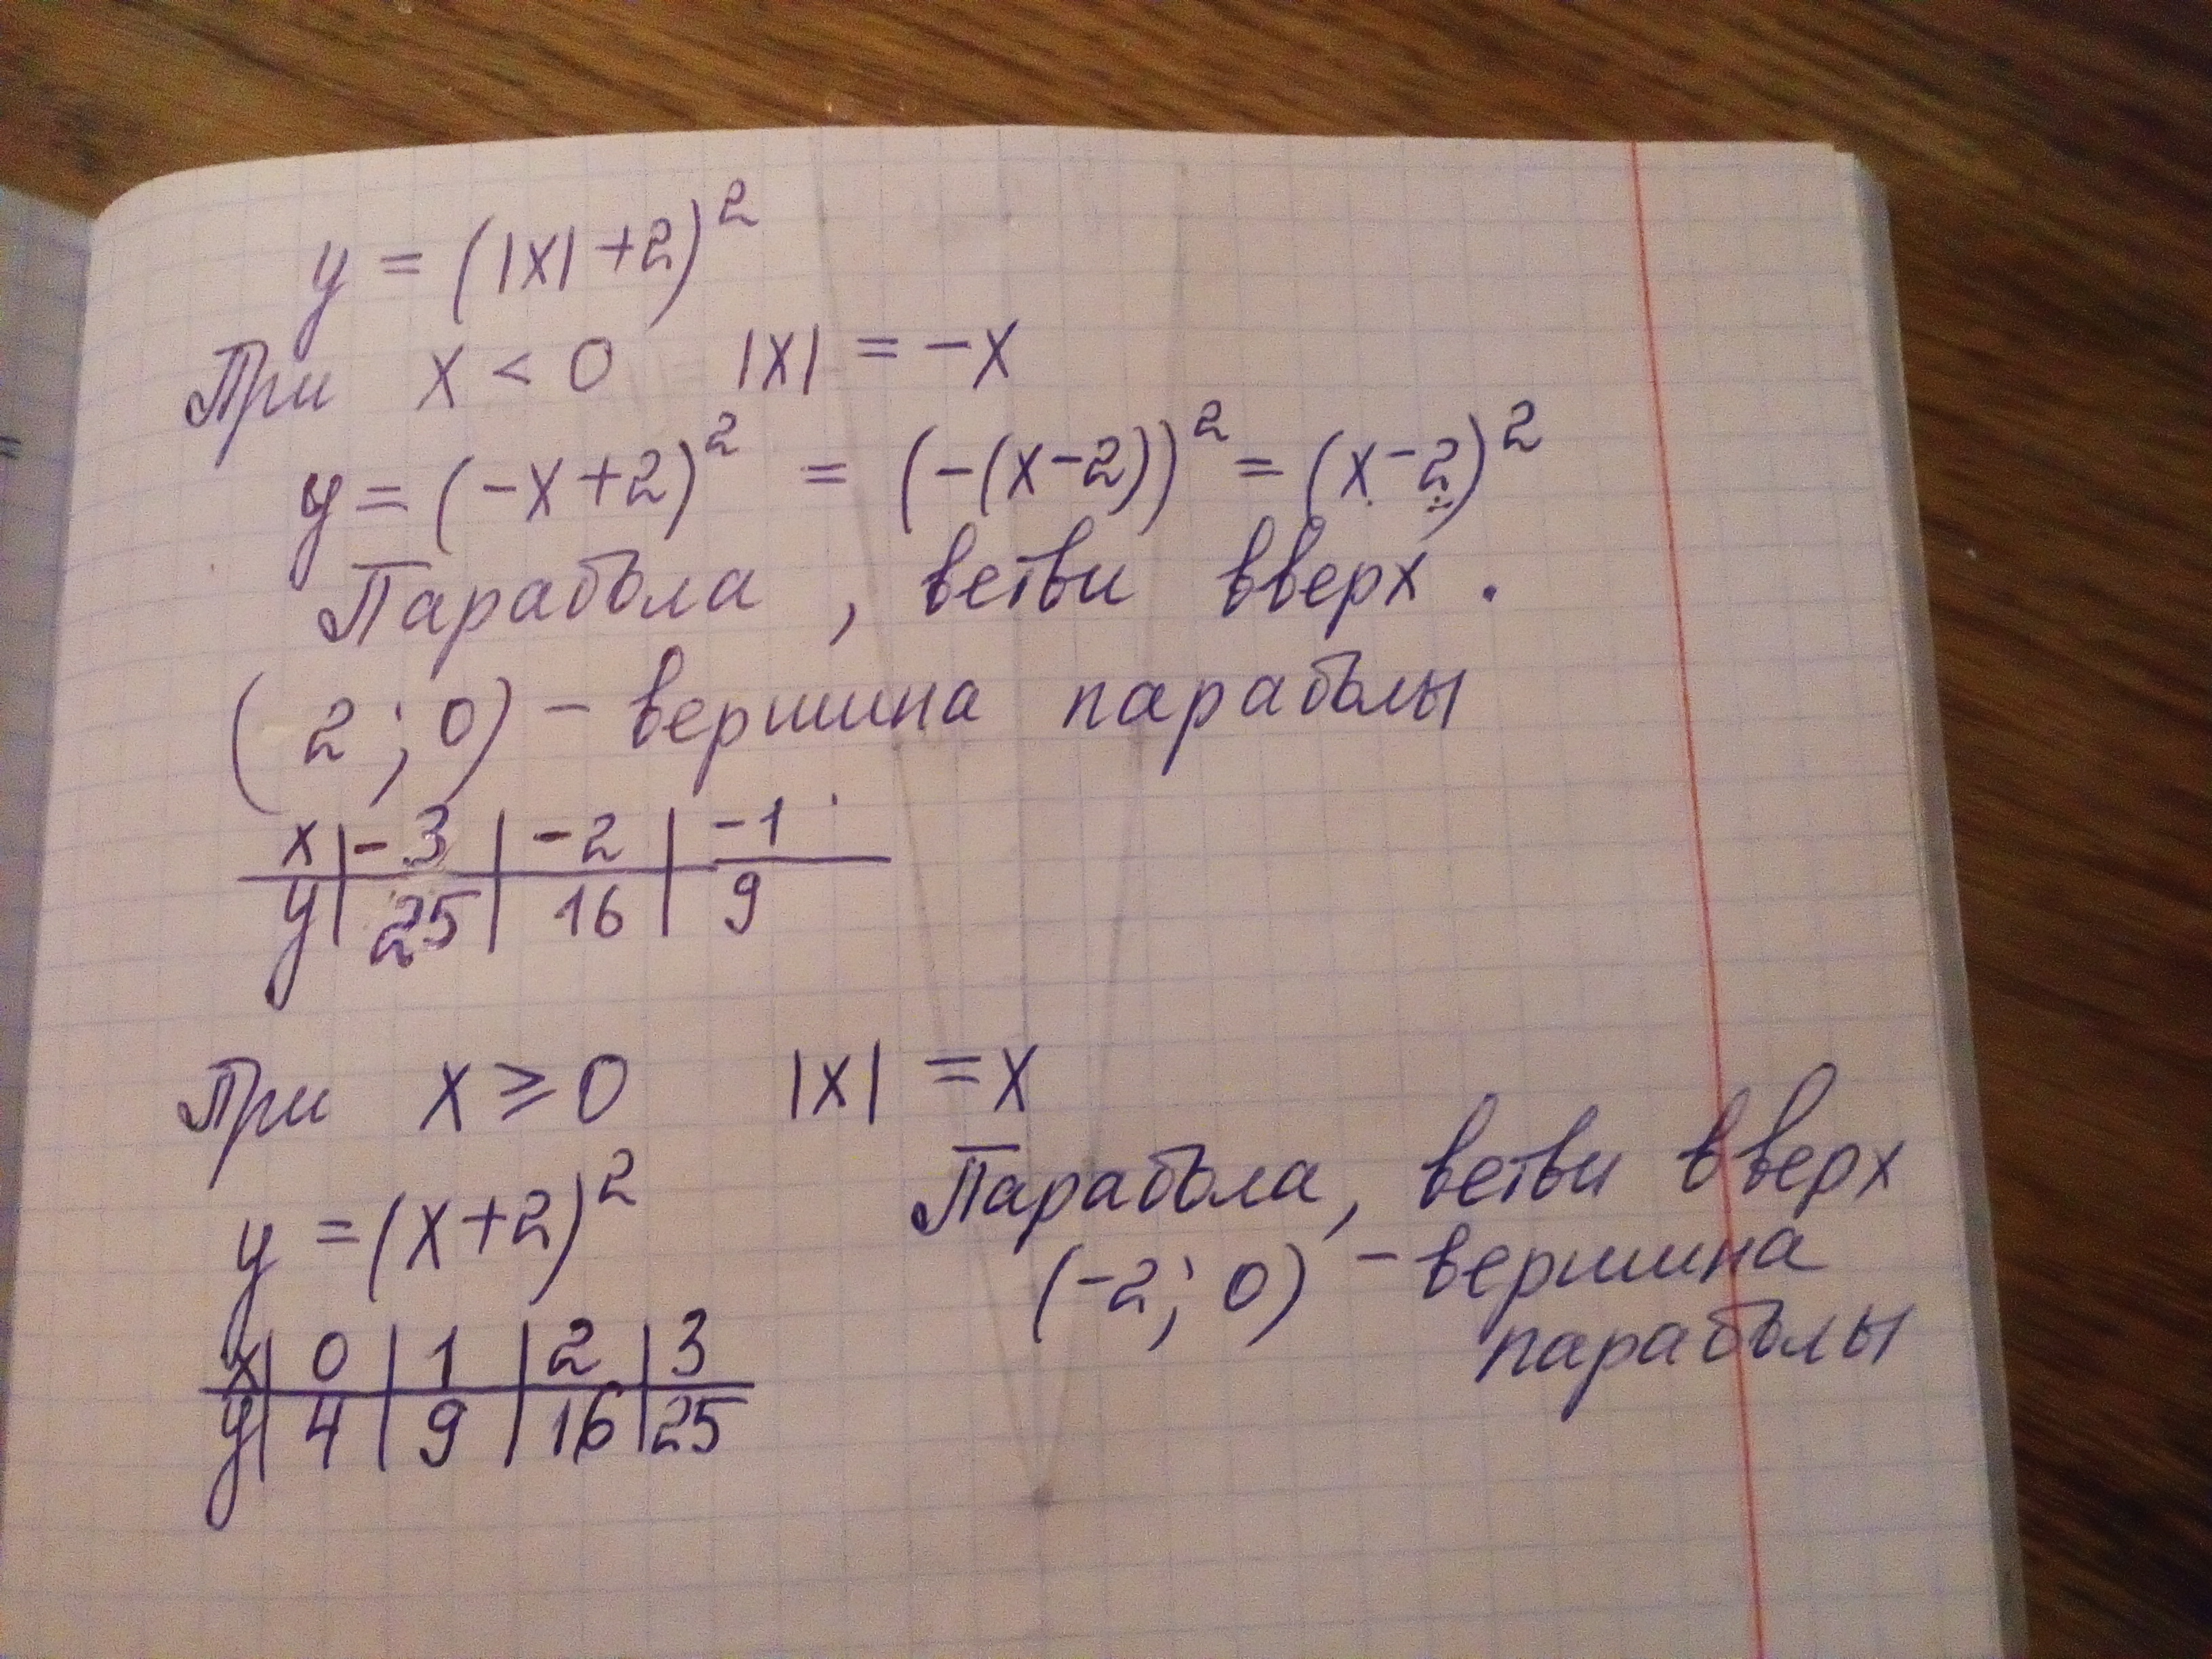 y = (|x| +2)²
При x < 0 |x| = -x
y = (-x+2)² = (-(x-2))² = (x-2)²
Парабола , ветви вверх .
( 2 ; 0) - вершина параболы
x | -3 | -2 | -1
y | 25 | 16 | 9
При x ≥ 0 |x| = x
y = (x+2)² Парабола, ветви вверх
(-2; 0) - вершина
параболы
x | 0 | 1 | 2 | 3
y | 4 | 9 | 16 | 25